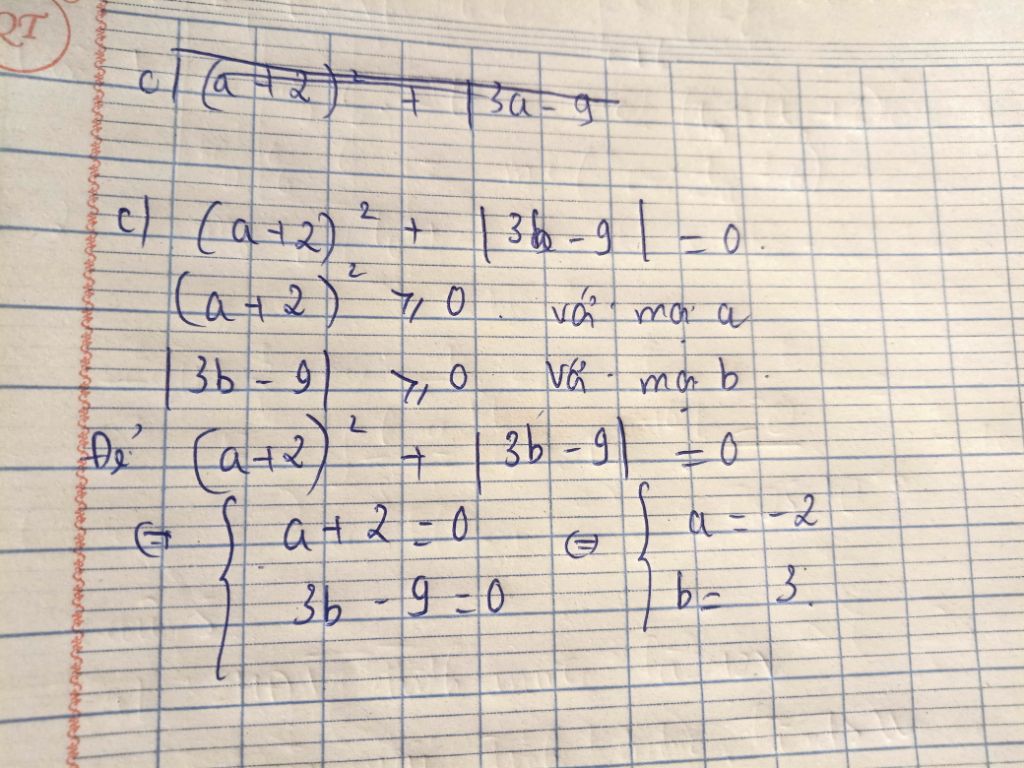 RT
c| (a+2)² + |3a - 9
c| (a+2)² + |3b - 9| = 0.
(a+2)² ≥ 0. với mọi a
|3b - 9| ≥ 0 với mọi b.
Để (a+2)² + |3b - 9| = 0
⇔ { a + 2 = 0 ⇔ { a = -2
3b - 9 = 0 b = 3.